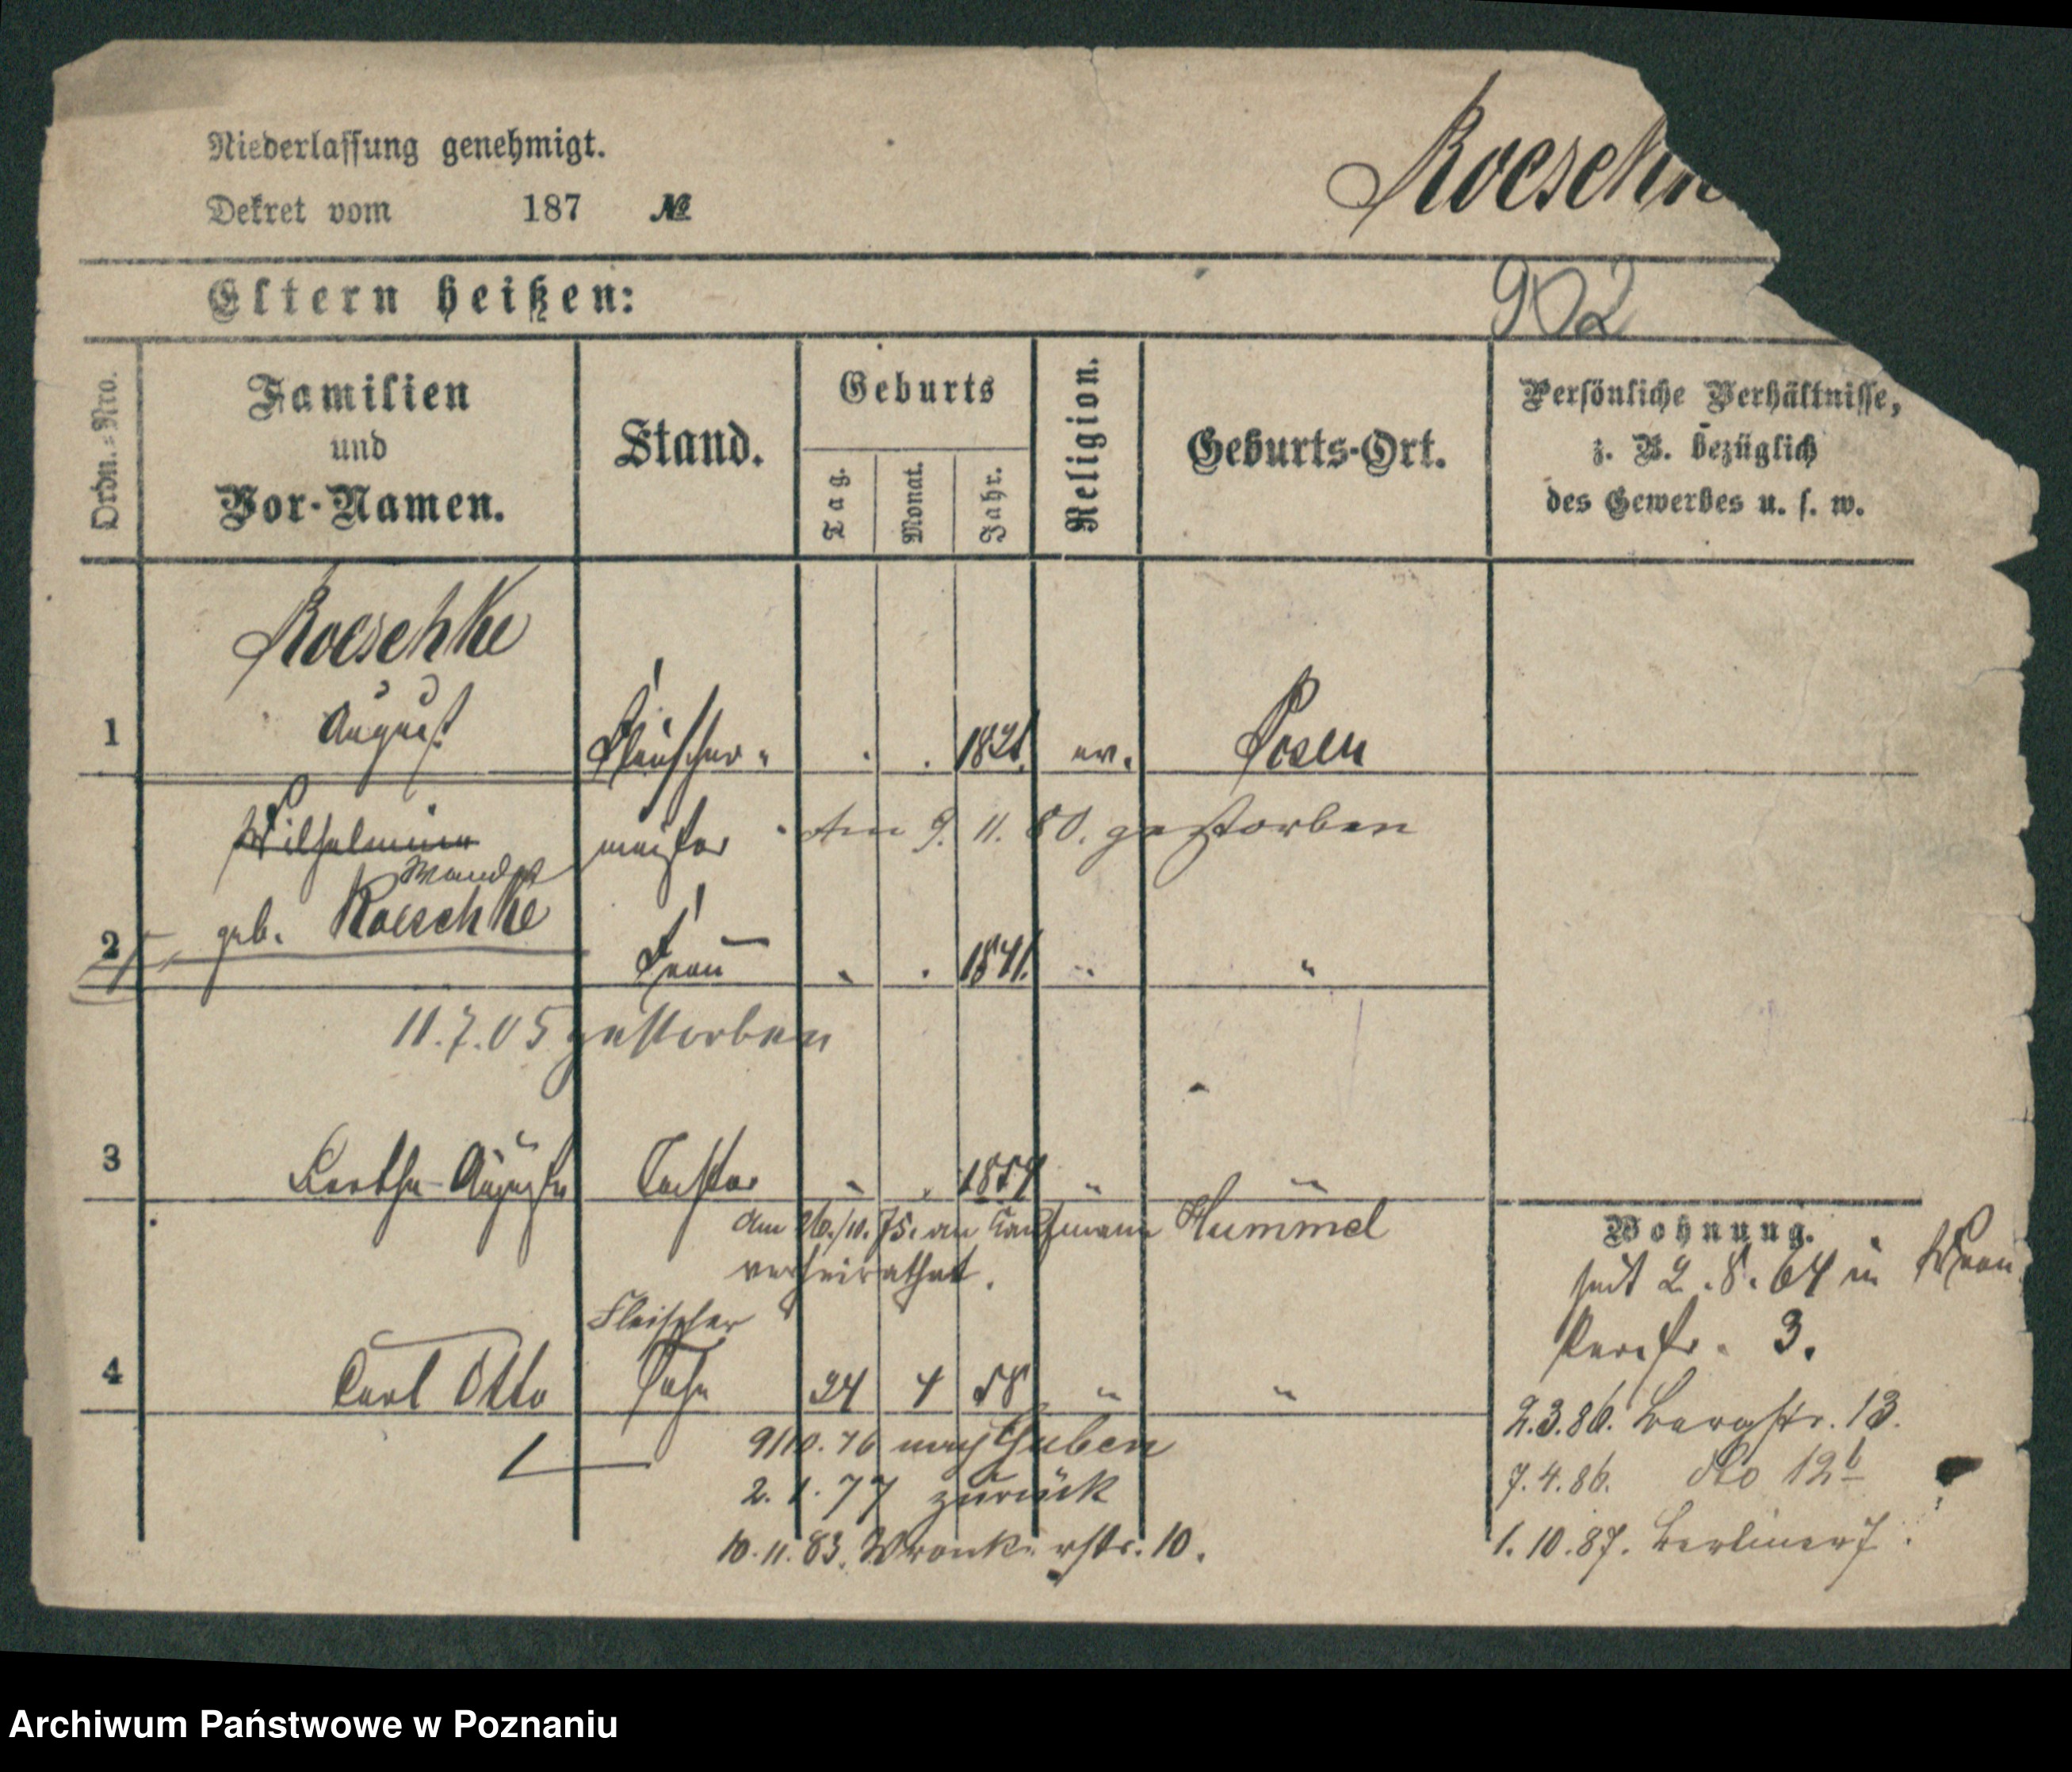 Niederlassung genehmigt.
Dekret vom 187 №
Roeschk
Eltern heißen:
902
Ordn.=Nro.
Familien
und
Vor-Namen.
Stand.
Geburts
Tag.
Monat.
Jahr.
Religion.
Geburts-Ort.
Persönliche Verhältnisse,
z. B. bezüglich
des Gewerbes u. s. w.
Roeschke
1 August Fleischer- 1821. ev. Posen
Wilhelmine meister Am 9. 11. 80. gestorben
geb. Roeschke
2 Frau 1841. "
11.7.05 gestorben
3 Bertha Auguste Tochter " 
am 26./10. 75. an Kaufmann Hummel
verheirathet.
Wohnung.
seit 2.8.64 in
3.
Fleischer
4 Carl Otto Sohn 24 4 58 " "
2.3.86. Bergstr. 13.
9/10.76 nach Guben
7.4.86. dto 12b
2.1.77 zurück
10.11.83. Wronkerstr. 10.
1.10.87. Berliner
Archiwum Państwowe w Poznaniu